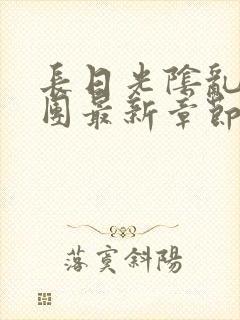 長日光陰亂
團最新章節
落寞斜陽